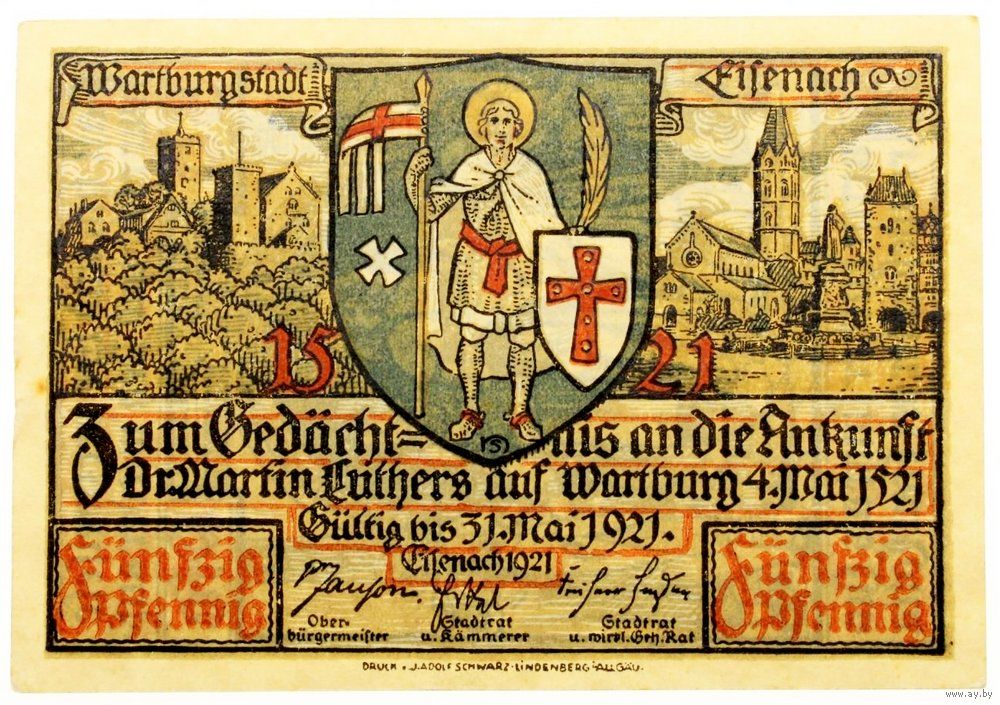 Wartburgstadt
Eisenach
15 21
Zum Gedächt=nis an die Ankunft
Dr. Martin Luthers auf Wartburg 4. Mai 1521
Gültig bis 31. Mai 1921.
Eisenach 1921
Fünfzig
Pfennig
Fünfzig
Pfennig
Ober-
bürgermeister
Stadtrat
u. Kämmerer
Stadtrat
u. wirkl. Geh. Rat
DRUCK v. J. ADOLF SCHWARZ·LINDENBERG i/ALLGÄU.
www.ay.by